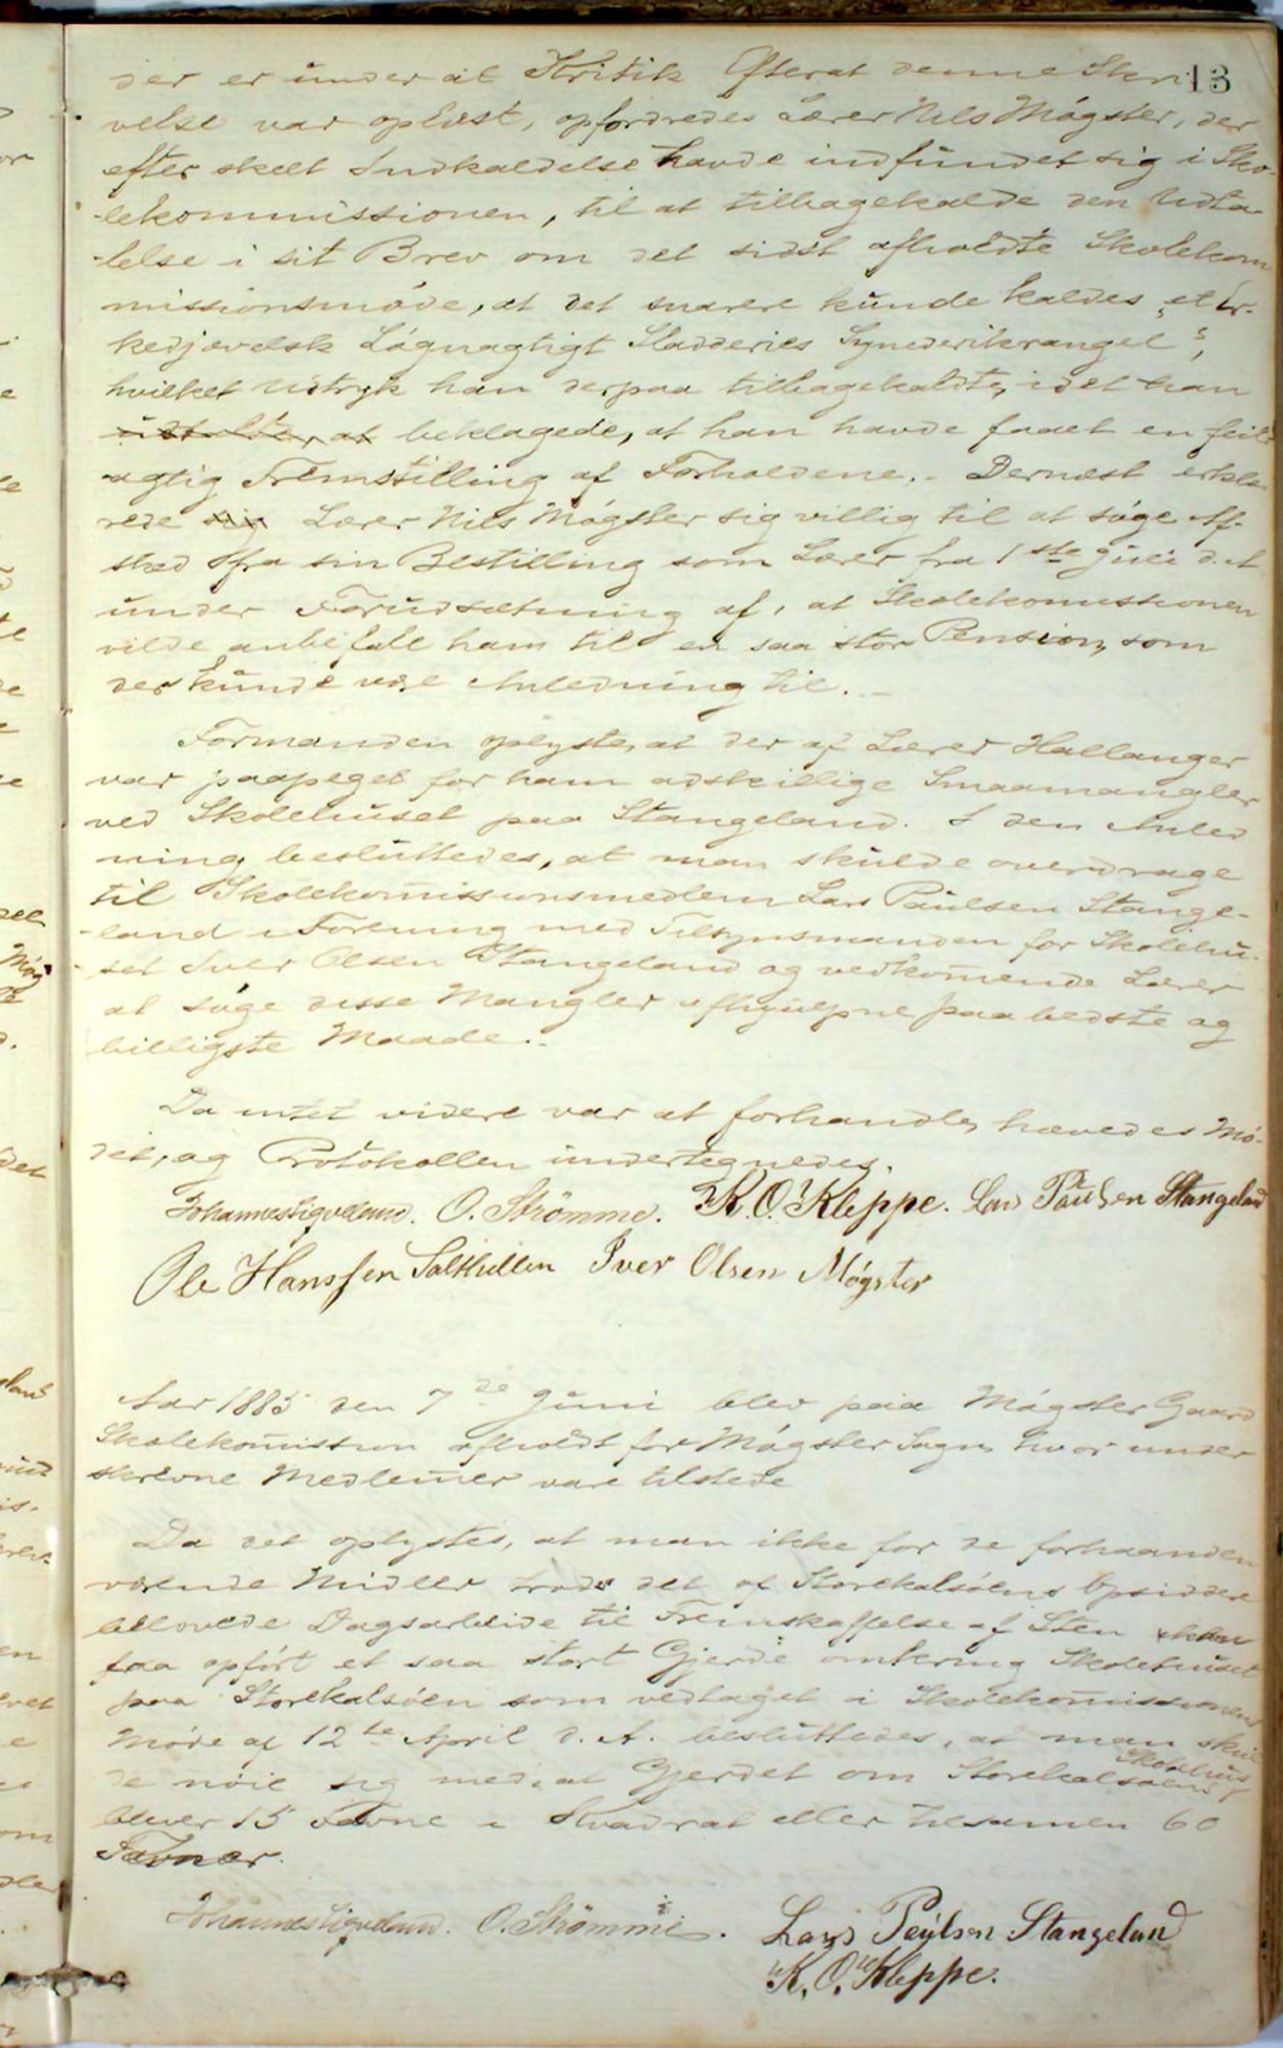 13
der er under al Kritik Efterat denne Skri
velse var oplæst, opfordredes Lærer Nils Møgster, der
efter skeet Indkaldelse havde indfundet sig i Sko-
lekommissionen, til at tilbagekalde den Udta-
lelse i sit Brev om det sidst afholdte Skolekom
missionsmøde, at det snarere kunde kaldes „et Er-
kedjævelsk Løgnagtigt Sladderies Synederikrangel“,
hvilket Udtryk han derpaa tilbagekaldte, idet han
beklagede, at han havde faaet en feil-
agtig Fremstilling af Forholdene. - Dernæst erklæ
rede sig Lærer Nils Møgster sig villig til at søge Af-
sked fra sin Bestilling som Lærer fra 1ste Juli d. A
under Forudsætning af, at Skolekomissionen
vilde anbefale ham til en saa stor Pension, som
der kunde være Anledning til. -
Formanden oplyste, at der af Lærer Hallanger
var paapeget for ham adskillige Smaamangler
ved Skolehuset paa Stangeland. I den Anled
ning besluttedes, at man skulde overdrage
til Skolekomissionsmedlem Lars Paulsen Stange-
land i Forening med Tilsynsmanden for Skolehu-
set Iver Olsen Stangeland og vedkomende Lærer
at søge disse Mangler afhjulpne paa bedste og
billigste Maade. -
Da intet videre var at forhandle, hævedes Mø-
det, og Protokollen undertegnedes.
Johannes Sigveland. O. Strömme. K. O. Kleppe. Lars Paulsen Stangeland
Ole Hanssen Iver Olsen Møgster
Aar 1885 den 7de Juni blev paa Møgster Gaard
Skolekomission afholdt for Møgster Sogn, hvor under
skrevne Medlemer vare tilstede
Da det oplystes, at man ikke for de forhaanden
værende Midler trods det af Storekalsøens Opsiddere
bellovede Dagsarbeide til Fremskaffelse af Sten
faa opført et saa stort Gjerde omkring Skolehuset
paa Storekalsøen som vedtaget i Skolekomissionens
Møde af 12te April d. A. besluttedes, at man skul
de nøie sig med, at Gjerdet om Storekalsøens Skolehus
bliver 15 Favne i Kvadrat eller tilsamen 60
Favner.
Johannes Sigveland. O. Strömme. Lars Paulsen Stangeland
K. O. Kleppe.